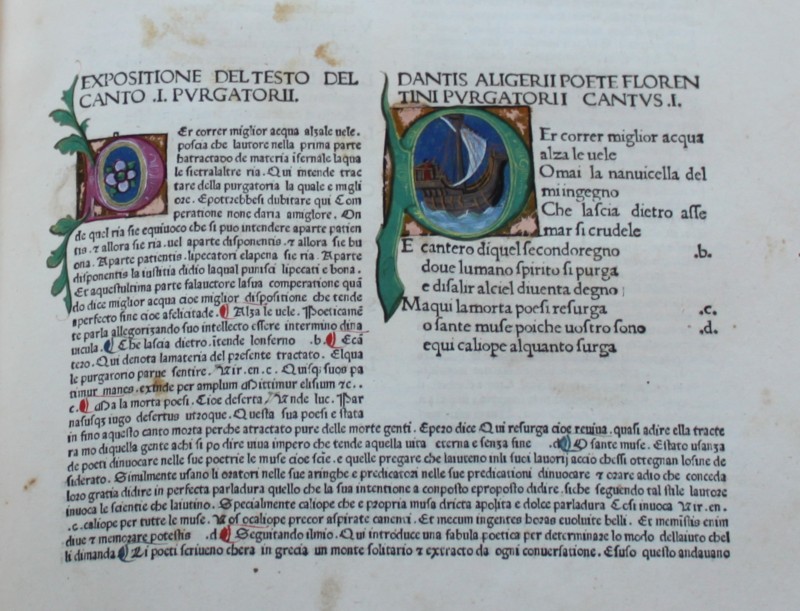 EXPOSITIONE DEL TESTO DEL
CANTO .I. PVRGATORII.
Er correr miglior acqua alzale uele.
poscia che lautore nella prima parte
hatractado de materia ifernale laqua
le sierralaltre ria. Qui intende trac
tare della purgatoria la quale e migli
ore. Epotrebbesi dubitare qui Com
peratione none daria amiglore. On
de quel ria sie equiuoco che si puo intendere aparte patien
tis. ⁊ allora sie ria. uel aparte disponentis. ⁊ allora sie bu
ona. Aparte patientis. lipeccatori elapena sie ria. Aparte
disponentis la iustitia didio laqual punisci lipeccati e bona.
Et aquestultima parte falauctore lasua comperatione quã
do dice miglior acqua cioe miglior dispositione che tende
aperfecto fine cioe afelicitade. Alza le uele. Poeticamẽ
te parla allegorizando suo intellecto essere intermino dina
uicula. Che lascia dietro. itende lonferno .b. Ecã
tero. Qui denota lamateria del presente tractato. Elqua
le purgatorio parue sentire. Vir. en. c. Quisq; suos pa
timur manes. exinde per amplum Mittimur elisium ⁊c. .
c. Ma la morta poesi. Cioe deserta. Vnde luc. Par
nasusq; iugo desertus utroque. Questa sua poesi e stata
DANTIS ALIGERII POETE FLOREN
TINI PVRGATORII CANTVS .I.
PEr correr miglior acqua
alza le uele
Omai la nauicella del
mi ingegno
Che lascia dietro asse
mar si crudele
E cantero di quel secondo regno .b.
doue lumano spirito si purga
e di salir al ciel diuenta degno
Ma qui la morta poesi resurga .c.
o sante muse poiche uostro sono .d.
e qui caliope alquanto surga
in fino aquesto canto morta perche atractato pure delle morte genti. Epero dice Qui resurga cioe reuina. quasi adire ella tracte
ra mo diquella gente achi si po dire uiua impero che tende aquella uita eterna e senza fine .d. O sante muse. Estato usanza
de poeti dinuocare nelle sue poetrie le muse cioe sciẽ. e quelle pregare che laiuteno inli suci lauorij accio chessi ottegnan losine de
siderato. Similmente usano li oratori nelle sue aringhe e predicatori nelle sue predicationi dinuocare ⁊ orare adio che conceda
loro gratia didire in perfecta parladura quello che la sua intentione a conposto eproposto didire. siche seguendo tal stile lautore
inuoca le scientie che laiutino. Specialmente caliope che e propria musa dricta apolita e dolce parladura Cosi inuoca Vir. en.
.c. caliope per tutte le muse. Vos o caliope precor aspirate canenti. Et mecum ingentes horas euoluite belli. Et memistis enim
diue ⁊ memorare potestis .d. Seguitando ilmio. Qui introduce una fabula poetica per determinare lo modo dellaiuto chel
li dimanda Li poeti scriueno chera in grecia un monte solitario ⁊ extracto da ogni conuersatione. Esuso questo andauano